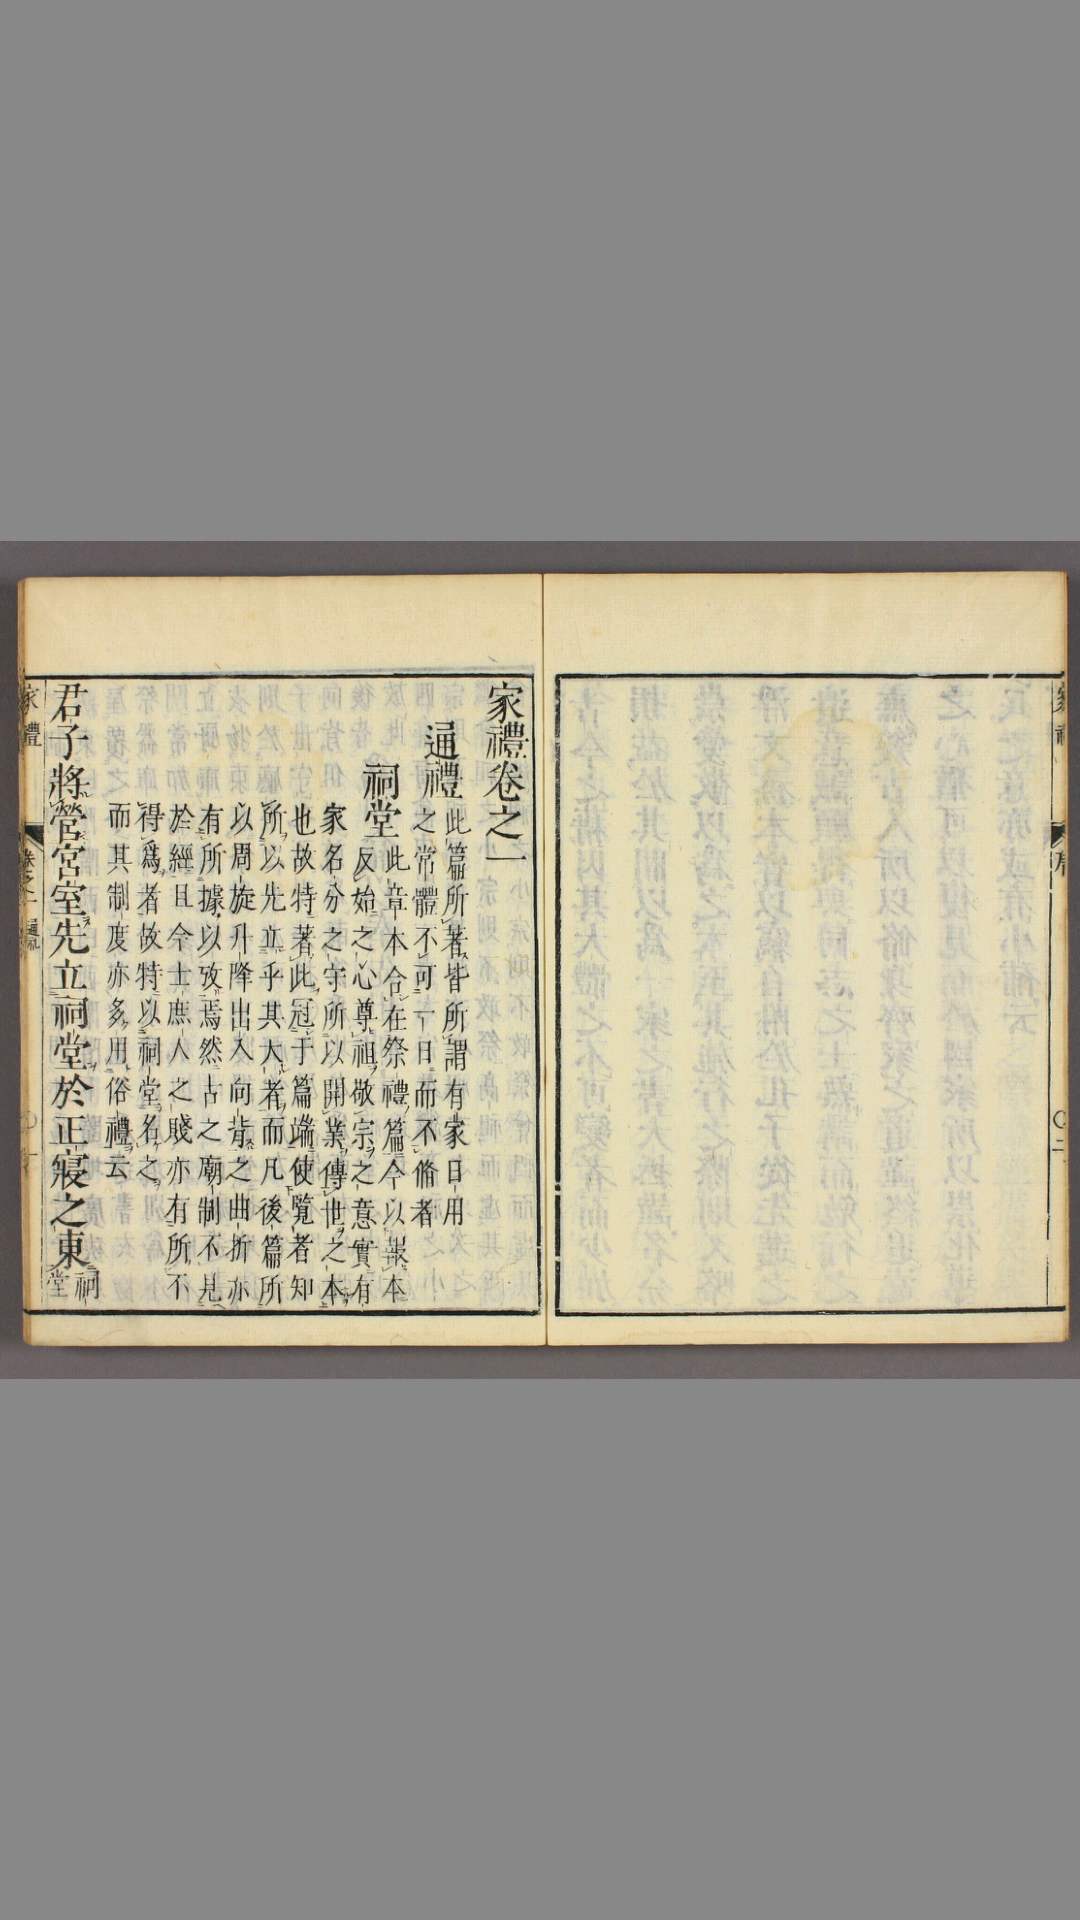 家禮卷之一
通禮
此篇所著皆所謂有家日用
之常體不可一日而不脩者
祠堂
此章本合在祭禮篇今以報本
反始之心尊祖敬宗之意實有
家名分之守所以開業傳世之本
也故特著此冠于篇端使覽者知
所以先立乎其大者而凡後篇所
以周旋升降出入向背之曲折亦
有所據以攷焉然古之廟制不見
於經且今士庶人之賤亦有所不
得爲者故特以祠堂名之
而其制度亦多用俗禮云
君子將營宮室先立祠堂於正寢之東
祠
堂
家禮
卷之一
通禮
〇一
〇二